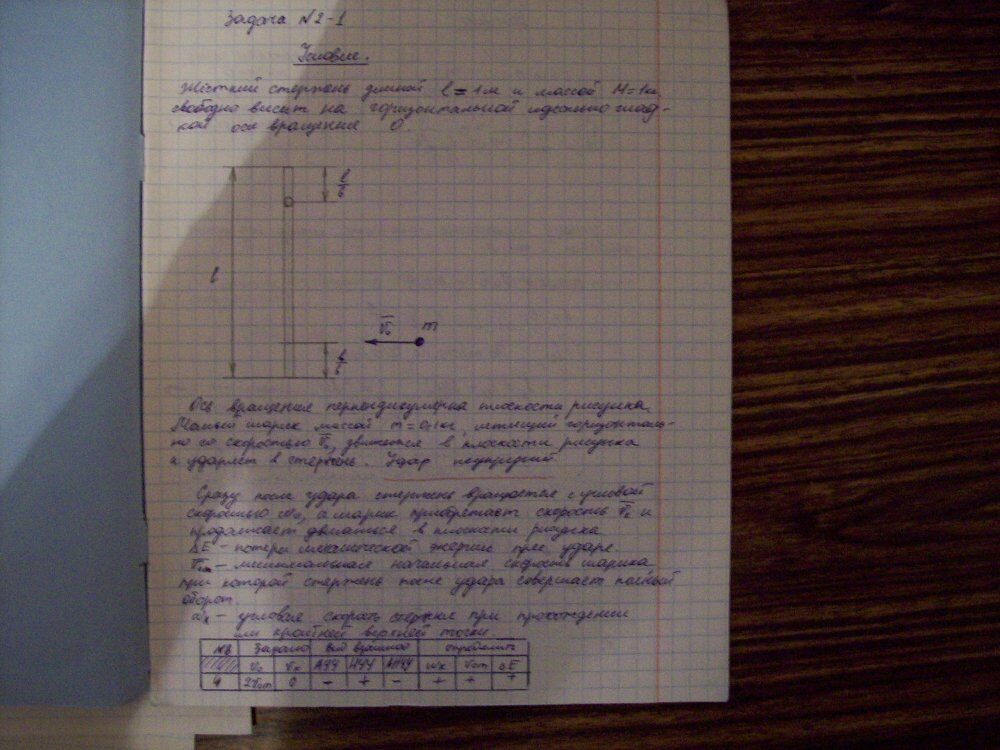 Задача №2-1
Условие.
Жёсткий стержень длиной l=1м и массой M=1кг
свободно висит на горизонтальной идеально глад-
кой оси вращения О.
l/6
l
v₀ m
l/6
Ось вращения перпендикулярна плоскости рисунка.
Малый шарик массой m=0,1кг, летящий горизонталь-
но со скоростью v₀, движется в плоскости рисунка
и ударяет в стержень. Удар неупругий.
Сразу после удара стержень вращается с угловой
скоростью ω₀, а шарик приобретает скорость vₖ и
продолжает двигаться в плоскости рисунка.
ΔE - потери механической энергии при ударе.
v₀ₘ - минимальная начальная скорость шарика,
при которой стержень после удара совершает полный
оборот.
ωₖ - угловая скорость стержня при прохождении
им крайней верхней точки.
№В Задано Вид взаимод определить
v₀ vₖ АУУ НУУ АНУУ ωₖ v₀ₘ ΔE
4 2v₀ₘ 0 - + - + + +